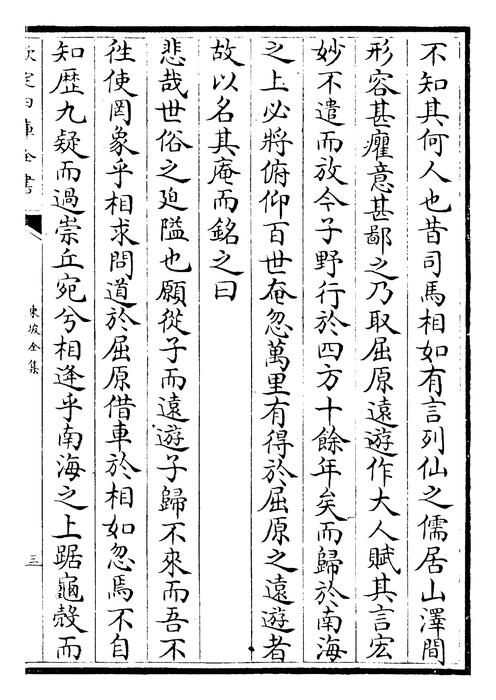 不知其何人也昔司馬相如有言列仙之儒居山澤間
形容甚癯意甚鄙之乃取屈原遠遊作大人賦其言宏
妙不遣而放今子野行於四方十餘年矣而歸於南海
之上必將俯仰百世奄忽萬里有得於屈原之遠遊者
故以名其庵而銘之曰
悲哉世俗之廹隘也願從子而遠遊子歸不來而吾不
徃使罔象乎相求問道於屈原借車於相如忽焉不自
知歴九疑而過崇丘宛兮相逢乎南海之上踞龜殼而
欽定四庫全書
東坡全集
三